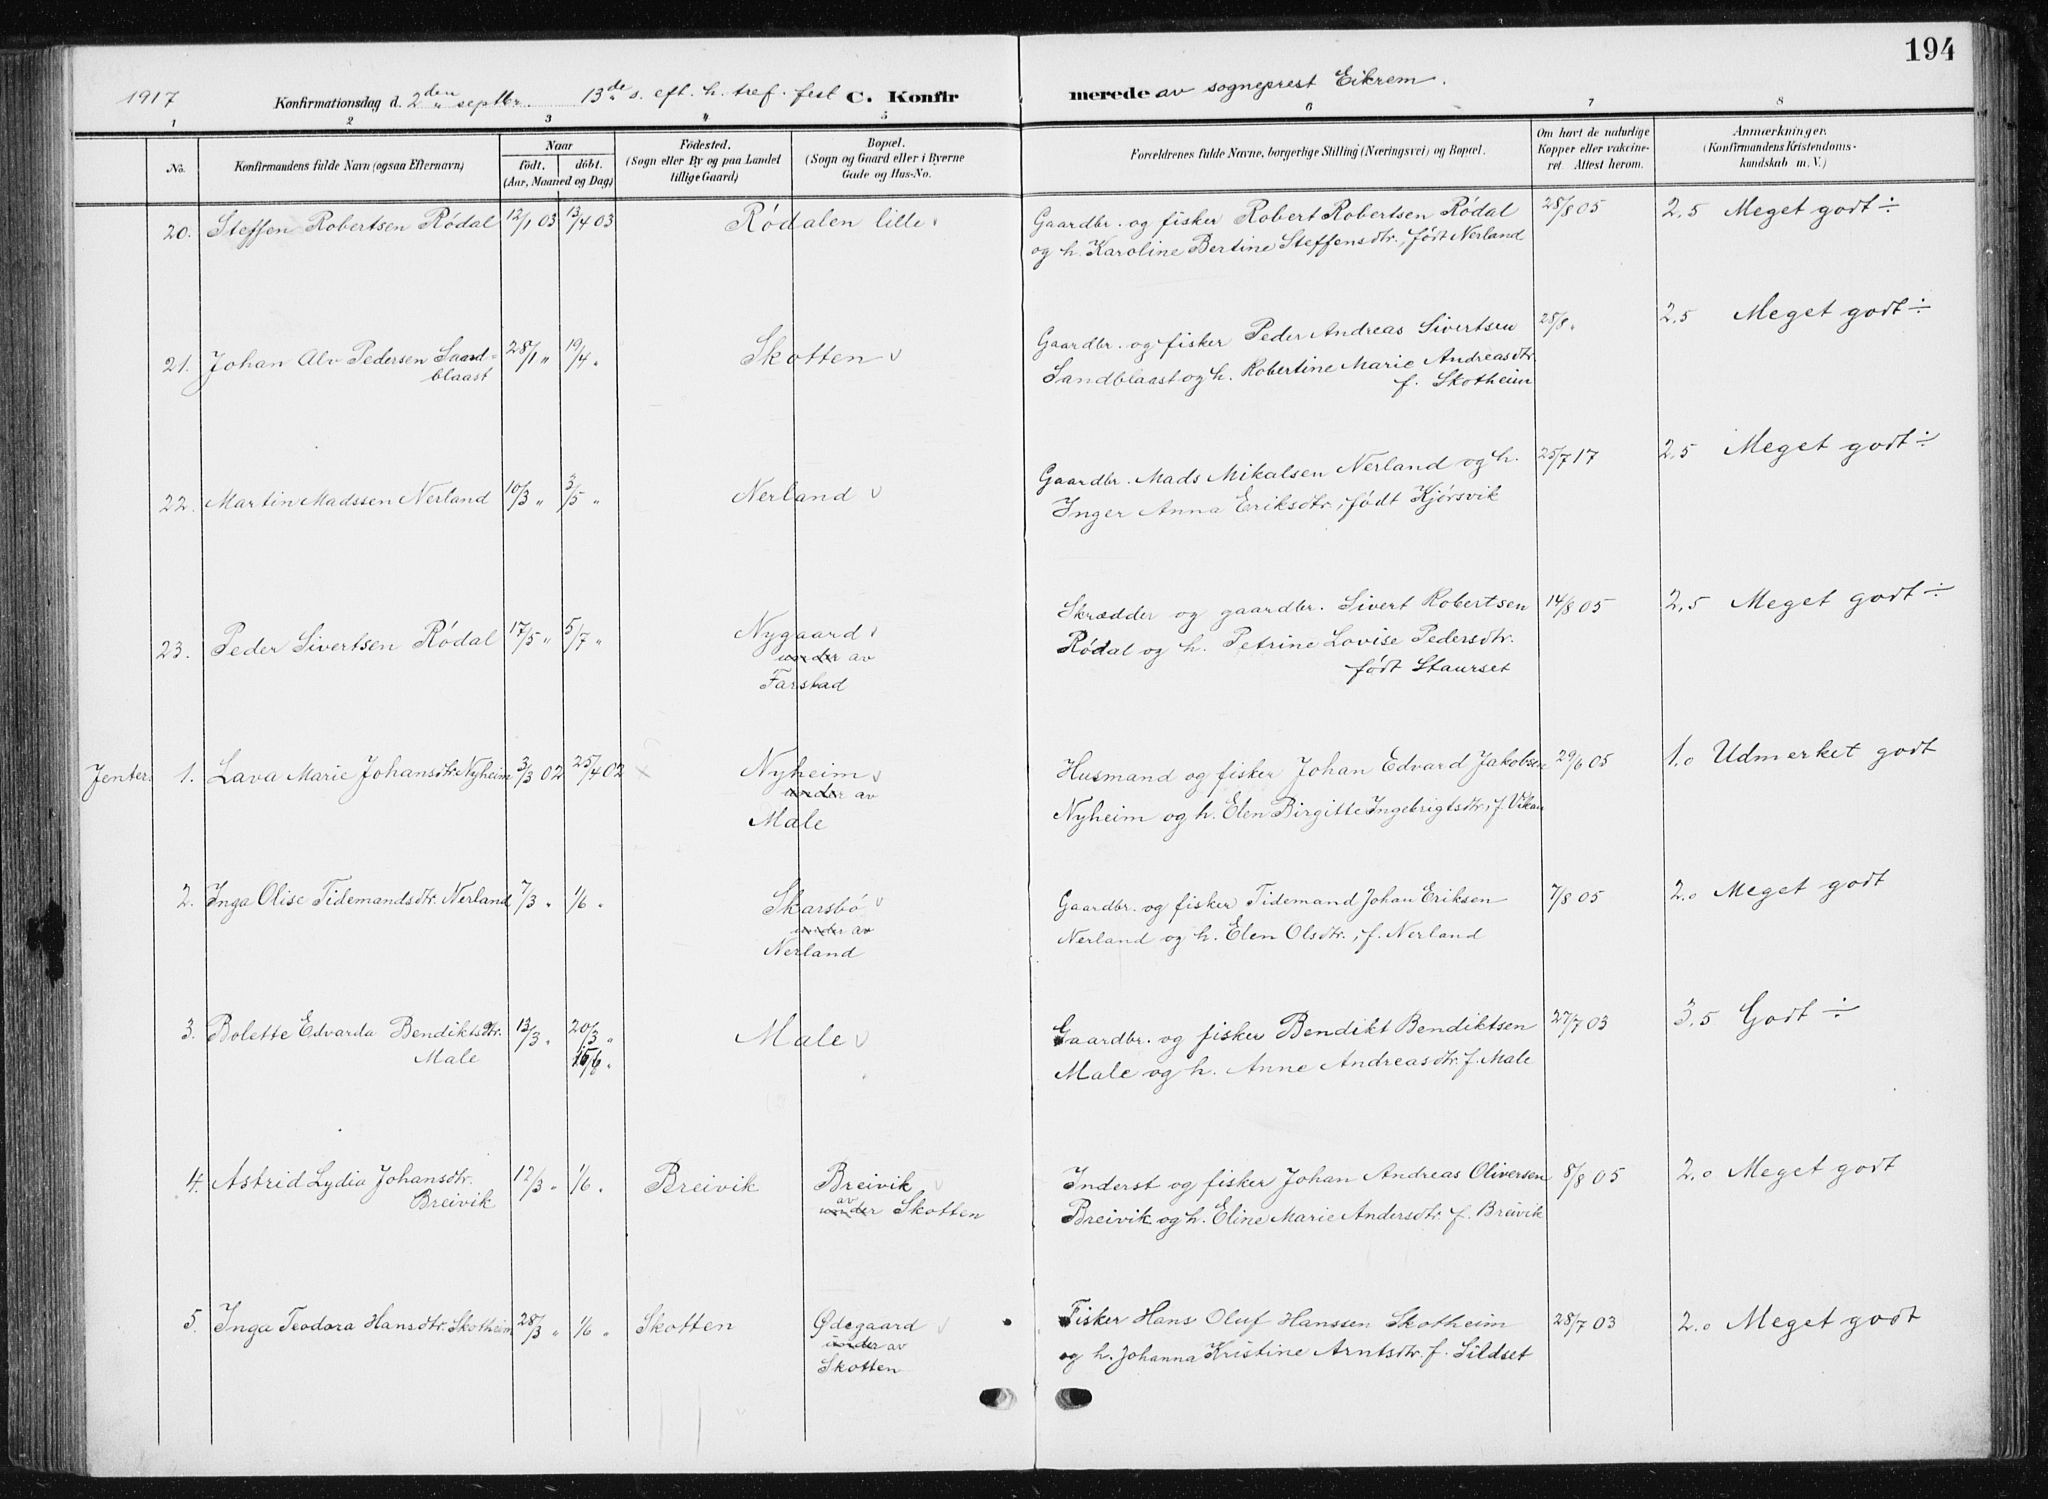 194
1917 Konfirmationsdag d. 2den septbr. 13de s. eft. h. tref. fest C. Konfirmerede av sogneprest Eikrem.
1 2 3 4 5 6 7 8
No. Konfirmandens fulde Navn (ogsaa Efternavn) Naar født, døbt. (Aar, Maaned og Dag) Fødested. (Sogn eller By og paa Landet tillige Gaard) Bopæl. (Sogn og Gaard eller i Byerne Gade og Hus-No. Forældrenes fulde Navne, borgerlige Stilling (Næringsvei) og Bopæl. Om havt de naturlige Kopper eller vakcineret. Attest herom. Anmærkninger. (Konfirmandens Kristendomskundskab m. V.)
20. Steffen Robertsen Rödal 12/1 03 13/4 03 Rödalen lille Gaardbr. og fisker Robert Robertsen Rödal 28/8 05 2.5 Meget godt ÷
og h. Karoline Bertine Steffensdtr., født Nerland
21. Johan Alv Pedersen Saand= 28/1 " 19/4 " Skotten Gaardbr. og fisker Peder Andreas Sivertsen 28/8 " 2.5 Meget godt ÷
blaast Sandblaast og h. Robertine Marie Andreasdtr.
f. Skotheim
22. Martin Madssen Nerland 10/3 " 3/5 " Nerland Gaardbr. Mads Mikalsen Nerland og h. 25/7 17 2.5 Meget godt ÷
Inger Anna Eriksdtr., født Kjörsvik
23. Peder Sivertsen Rödal 17/5 " 5/7 " Nygaard Skrædder og gaardbr. Sivert Robertsen 14/8 05 2.5 Meget godt ÷
under av Rödal og h. Petrine Lovise Pedersdtr.
Farstad født Staurset
Jenter. 1. Lava Marie Johansdtr Nyheim 3/3 02 25/4 02 Nyheim Husmand og fisker Johan Edvard Jakobsen 29/6 05 1.0 Udmerket godt
under av Nyheim og h. Elen Birgitte Ingebrigtsdtr., f. Vikan
Male
2. Inga Olise Tidemandsdtr. Nerland 7/3 " 1/6 " Skarsbö Gaardbr. og fisker Tidemand Johan Eriksen 7/8 05 2.0 Meget godt
under av Nerland og h. Elen Olsdtr., f. Nerland
Nerland
3. Bolette Edvarda Bendiktsdtr. 13/3 " 20/3 " Male Gaardbr. og fisker Bendikt Bendiktsen 27/7 03 3.5 Godt ÷
Male 15/6 " Male og h. Anne Andreasdtr. f. Male
4. Astrid Lydia Johansdtr. 12/3 " 1/6 " Breivik Breivik Inderst og fisker Johan Andreas Oliversen 8/8 05 2.0 Meget godt
Breivik under av Skotten Breivik og h. Eline Marie Andersdtr. f. Breivik
5. Inga Teodora Hansdtr. Skotheim 28/3 " 1/6 " Skotten Ødegaard Fisker Hans Oluf Hanssen Skotheim 28/7 03 2.0 Meget godt
under av og h. Johanna Kristine Arntsdtr. f. Sildset
Skotten